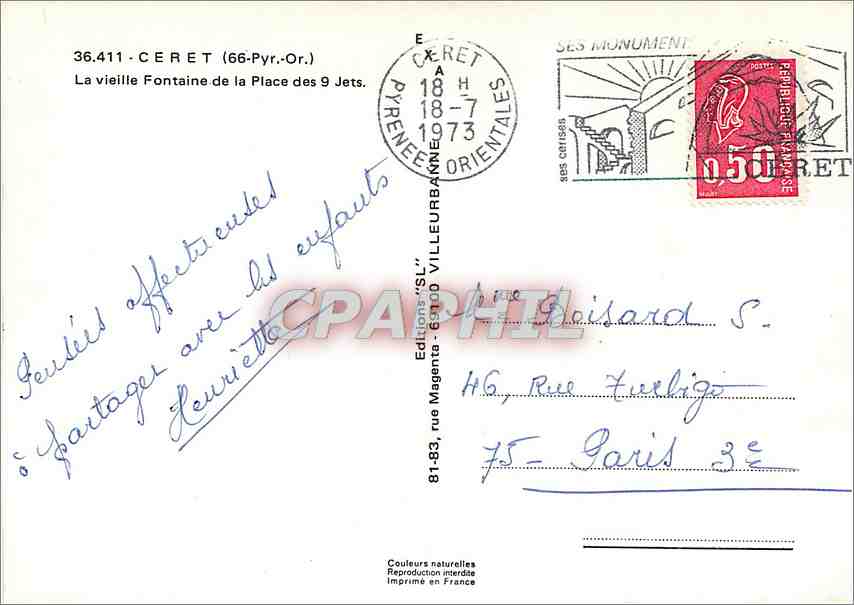 36.411 - CERET (66-Pyr.-Or.)
La vieille Fontaine de la Place des 9 Jets.
CERET
18 H
18-7
1973
PYRENEES ORIENTALES
SES MONUMENT
ses cerises
CERET
POSTES
REPUBLIQUE FRANÇAISE
0,50
Pensées affectueuses
à partager avec les enfants
Henriette
E
X
A
Editions "SL"
81-83, rue Magenta - 69100 VILLEURBANNE
CPAPHIL
Mme Boisard S.
46, Rue Turbigo
75 - Paris 3e
Couleurs naturelles
Reproduction interdite
Imprimé en France